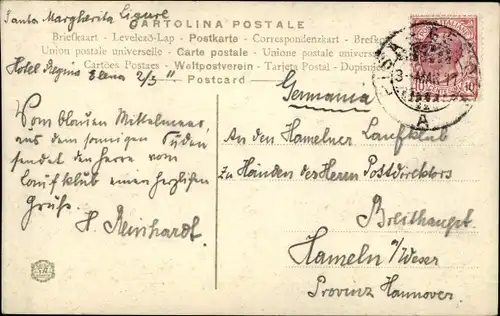 Santa Margherita Ligure
CARTOLINA POSTALE
Briefkaart - Levelező-Lap - Postkarte - Correspondenzkart - Brefkort
Union postale universelle - Carte postale - Unione postale universale
Cartões Postaes - Weltpostverein - Tarjeta Postal - Dopisnice
Postcard
Hotel Regina Elena 2/3 11
Germania
Vom blauen Mittelmeer,
aus dem sonnigen Süden
sendet den Herren vom
Laufklub einen herzlichen
Gruß.
H. Reinhardt.
An den Hamelner Laufklub
zu Händen des Herrn Postdirektors
Breithaupt
Hameln a/Weser
Provinz Hannover.
10 10
A